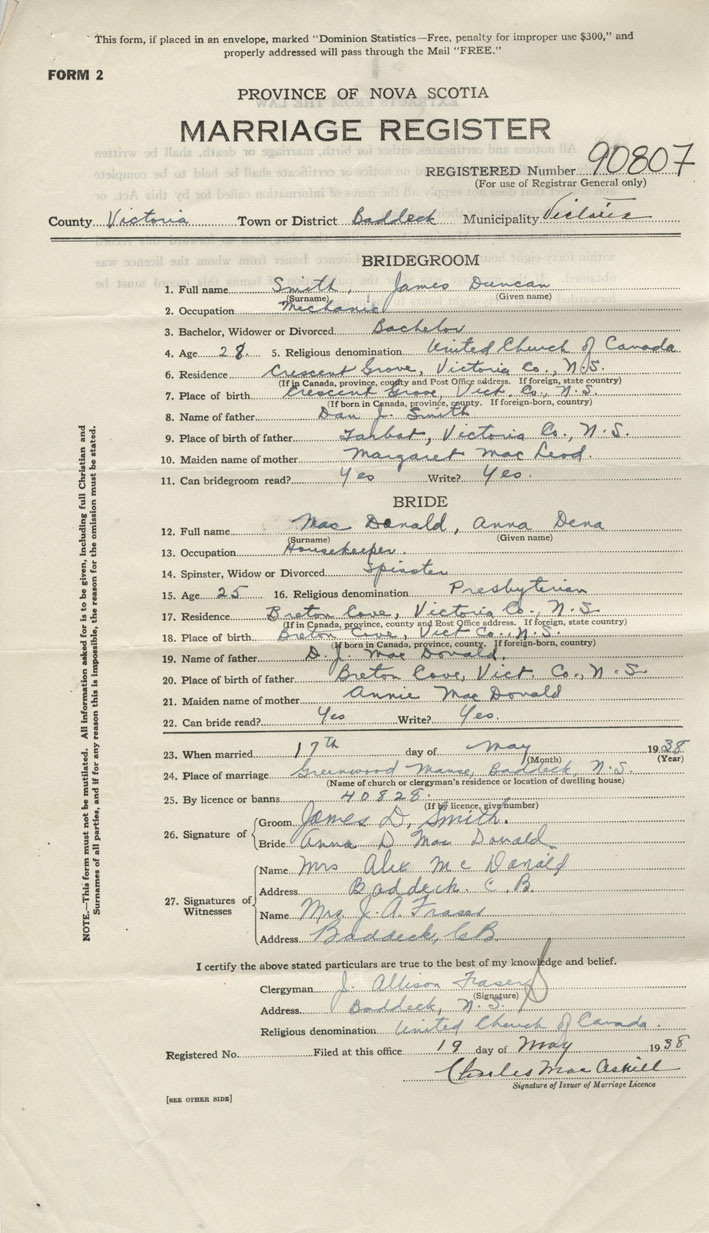 This form, if placed in an envelope, marked "Dominion Statistics—Free, penalty for improper use $300," and
properly addressed will pass through the Mail "FREE."
FORM 2
PROVINCE OF NOVA SCOTIA
MARRIAGE REGISTER
REGISTERED Number 90807
(For use of Registrar General only)
County Victoria Town or District Baddeck Municipality Victoria
BRIDEGROOM
1. Full name Smith, James Duncan
(Surname) (Given name)
2. Occupation Mechanic
3. Bachelor, Widower or Divorced Bachelor
4. Age 28. 5. Religious denomination United Church of Canada
6. Residence Crescent Grove, Victoria Co., N.S.
(If in Canada, province, county and Post Office address. If foreign, state country)
7. Place of birth Crescent Grove, Vict. Co., N.S.
(If born in Canada, province, county. If foreign-born, country)
8. Name of father Dan J. Smith
9. Place of birth of father Tarbot, Victoria Co., N.S.
10. Maiden name of mother Margaret Mac Leod.
11. Can bridegroom read? Yes Write? Yes.
BRIDE
12. Full name Mac Donald, Anna Dena
(Surname) (Given name)
13. Occupation Housekeeper.
14. Spinster, Widow or Divorced Spinster
15. Age 25 16. Religious denomination Presbyterian
17. Residence Breton Cove, Victoria Co., N.S
(If in Canada, province, county and Post Office address. If foreign, state country)
18. Place of birth Breton Cove, Vict Co., N.S.
(If born in Canada, province, county. If foreign-born, country)
19. Name of father D. J. Mac Donald.
20. Place of birth of father Breton Cove, Vict. Co., N.S
21. Maiden name of mother Annie Mac Donald
22. Can bride read? Yes Write? Yes.
23. When married 17th day of May 1938
(Month) (Year)
24. Place of marriage Greenwood Manse, Baddeck, N.S.
(Name of church or clergyman's residence or location of dwelling house)
25. By licence or banns 40828.
(If by licence, give number)
26. Signature of
Groom James D. Smith.
Bride Anna D Mac Donald.
27. Signatures of Witnesses
Name Mrs Alex Mc Donald
Address Baddeck. C.B.
Name Mrs. J. A. Fraser
Address Baddeck, C.B.
I certify the above stated particulars are true to the best of my knowledge and belief.
Clergyman J. Allison Fraser
(Signature)
Address Baddeck, N.S.
Religious denomination United Church of Canada.
Registered No. Filed at this office 19 day of May 1938
Charles Mac Askill
Signature of Issuer of Marriage Licence
[SEE OTHER SIDE]
NOTE.—This form must not be mutilated. All information asked for is to be given, including full Christian and
Surnames of all parties, and if for any reason this is impossible, the reason for the omission must be stated.